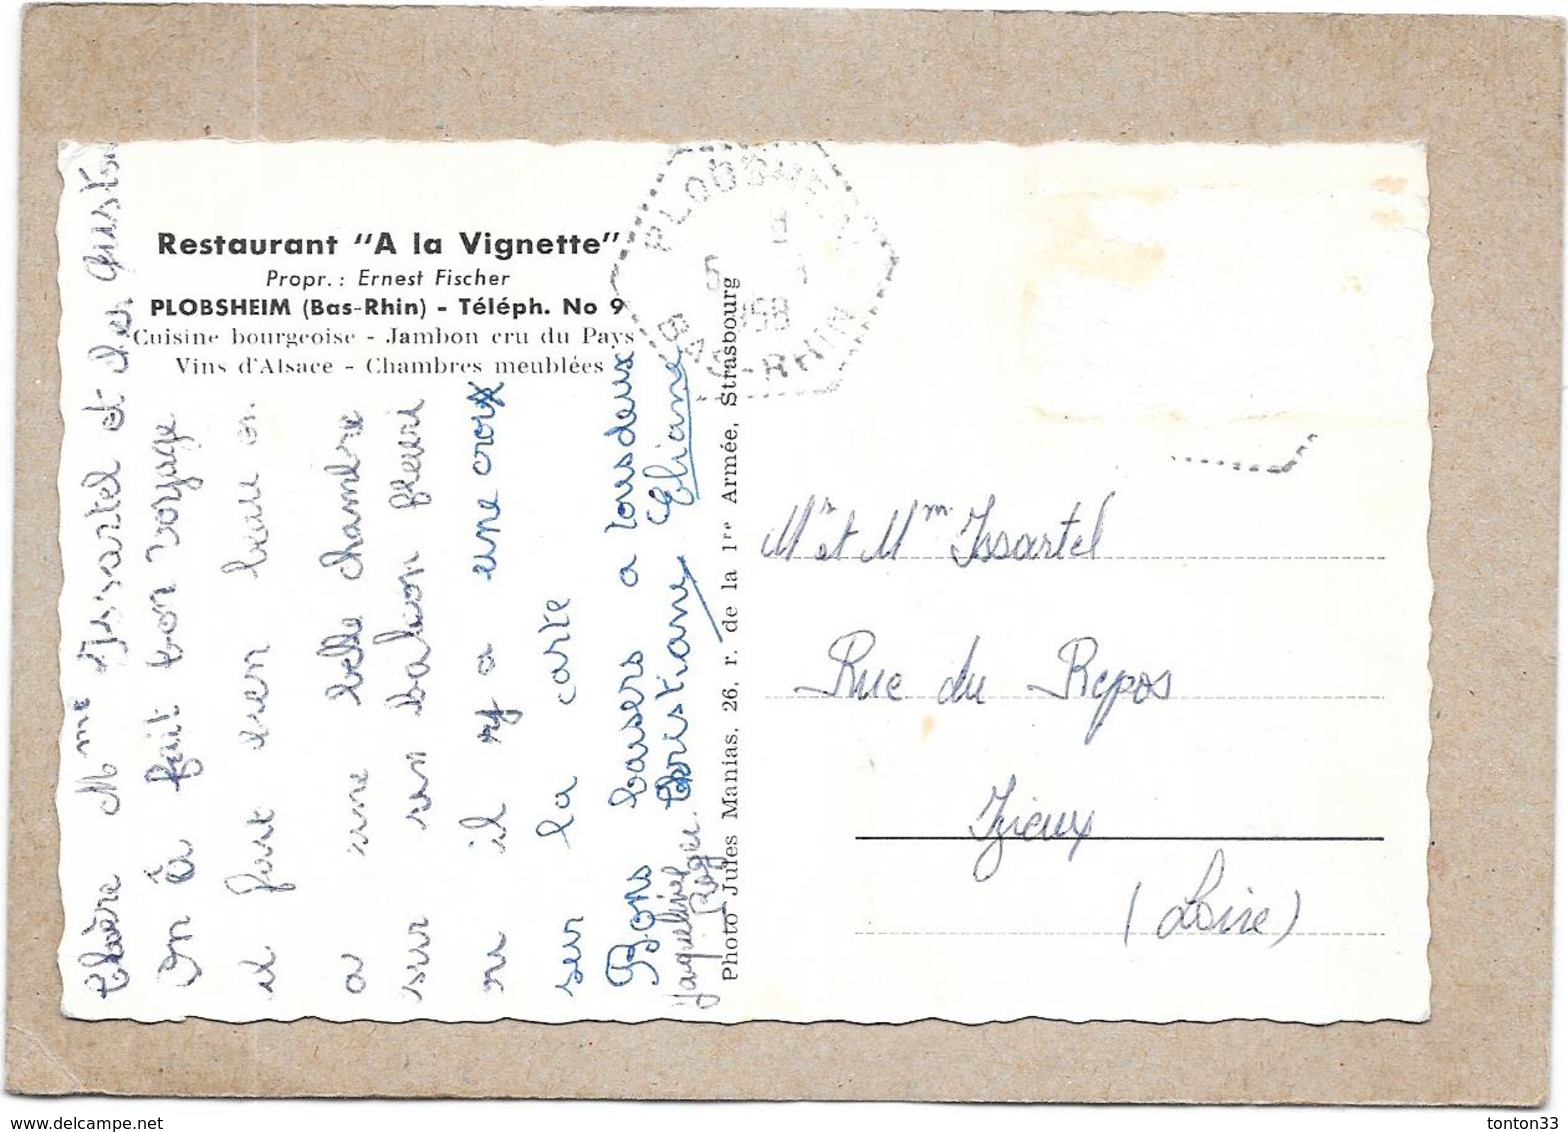 Restaurant "A la Vignette"
Propr. : Ernest Fischer
PLOBSHEIM (Bas-Rhin) - Téléph. No 9
Cuisine bourgeoise - Jambon cru du Pays
Vins d'Alsace - Chambres meublées
Chère Mme Issartel et les
On à fait bon voyage
il fait bien beau on
a une belle chambre
sur un balcon fleuri
il y a une croix
sur la carte
Bons baisers a tous deux
Jaqueline Christiane Eliane
Roger
Photo Jules Manias, 26, r. de la 1re Armée, Strasbourg
PLOBSHEIM
BAS-RHIN
Mr et Mm Issartel
Rue du Repos
Izieux
(Loire)
tonton33